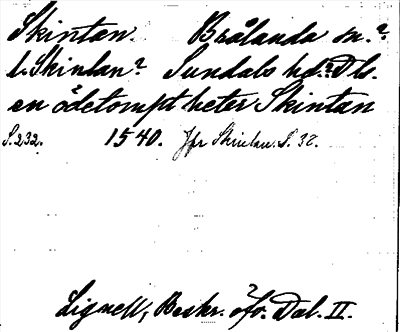 Skintan. Brålanda sn.?
l. Skinlan? Sundals hd.? Dls.
en ödetompt heter Skintan
S. 232. 1540. Jfr Skinlan. S. 32.
Lignell, Beskr. öfv. Dal. II.